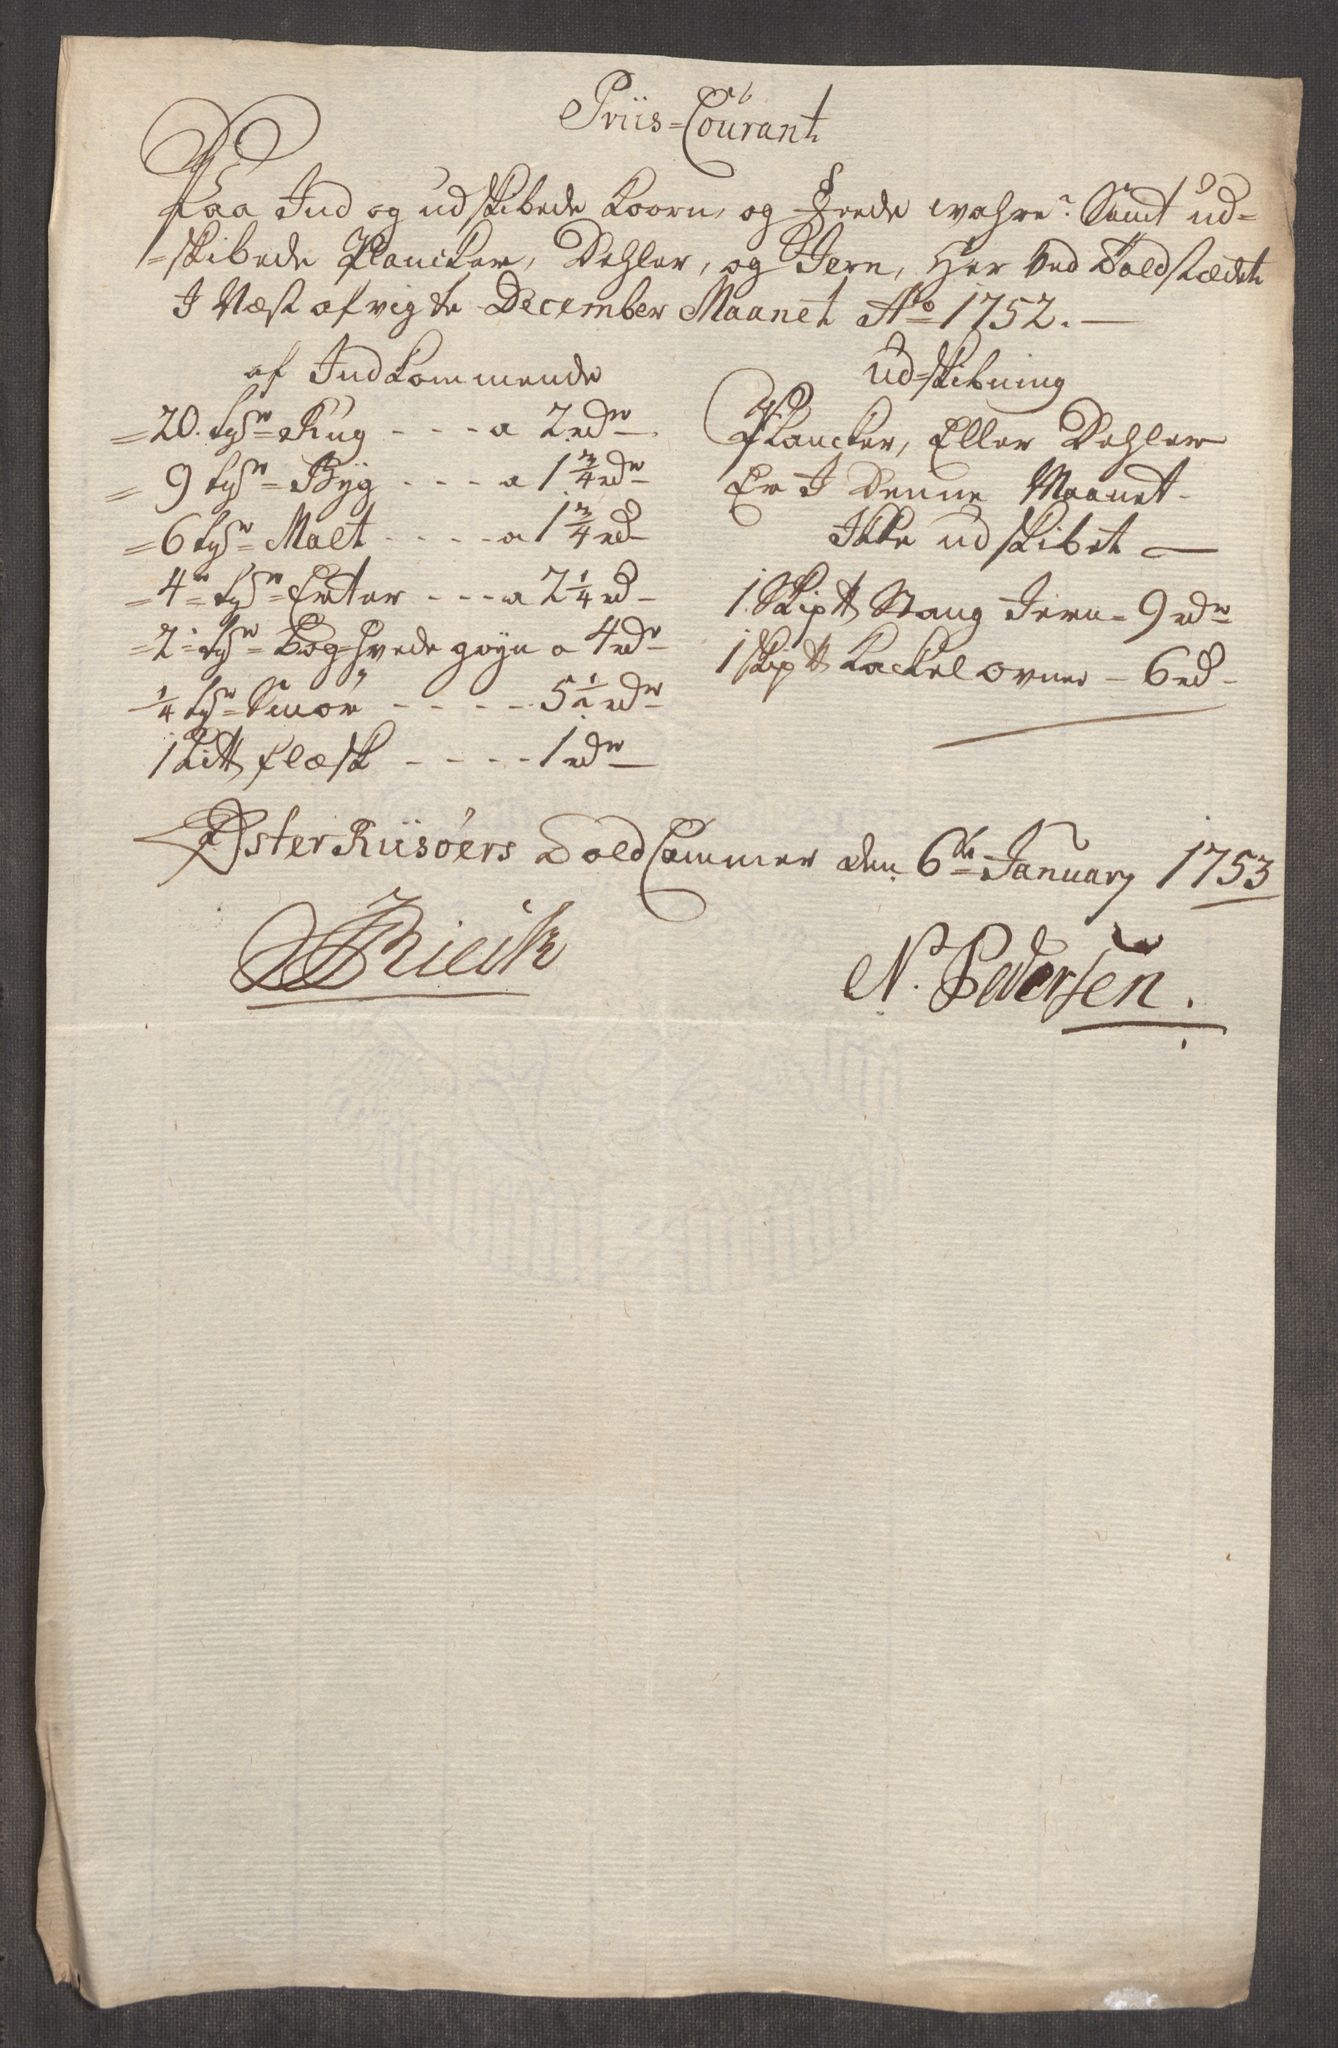 Priis-Courant
Paa Ind og udskibede Koorn, og Fede wahre. Samt ud=
=skibede Plancker, Dehler, og Jern, Her ved Toldstædet
I Næst afvigte December Maanet Ao 1752.
af Indkommende
=20. tdr Rug - - - a 2 rdr
=9 tdr Byg - - - - a 1 3/4 rdr
=6 tdr Malt - - - - a 1 3/4 rd
=4 tdr Erter - - - a 2 1/4 rd
=2 tdr Boghvede gryn a 4 rdr
1/4 tdr Smör - - - - - 5 1/2 rdr
1 Li℔ flæsk - - - - - 1 rdr
Ud=skibning
Plancker, Eller Dehler
Er I Denne Maanet
Ikke udskibet
1 Skip℔ Stang Jern - 9 rdr
1 Skip℔ Kackelovner - 6 rd
ØsterRiisöers Told Cammer den 6te January 1753
N. Pedersen.